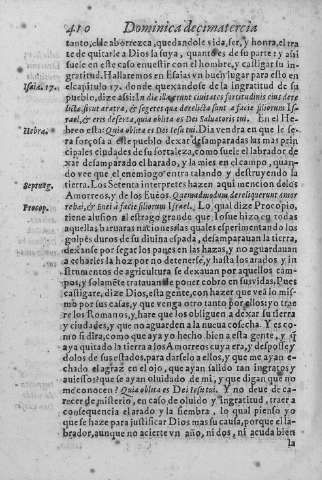 410 Dominica decimatercia
tanto, q̃ le aborrezca, quedandole vida, ser, y honra, el tra
te de quitarle a Dios la suya, quanto es de su parte: y assi
suele en este caso enuestir con el hombre, y castigar su in-
gratitud. Hallaremos en Esaias vn buẽ lugar para esto en
Isaiæ. 17. el capitulo 17. donde quexandose de la ingratitud de su
pueblo, dize assi: In die illa erunt ciuitates fortitudinis eius dere
lictæ sicut aratra, & segetes quæ derelictæ sunt a facie filiorum Is-
rael, & eris deserta, quia oblita es Dei Saluatoris tui. En el He-
Hebra. breo esta: Quia oblita es Dei Iesu tui. Dia vendra en que le se-
ra forçoso a este pueblo dexar desamparadas sus mas prin
cipales ciudades de su fortaleza, como suele el labrador de
xar desamparado el harado, y la mies en el campo, quan-
do vee que el enemigo entra talando y destruyendo la
Septuag. tierra. Los Setenta interpretes hazen aqui mencion de los
Amorreos, y de los Eueos. Quemadmodum dereliquerunt Amor
Procop. rebæi, & Euei a facie filiorum Israel. Lo qual dize Procopio,
tiene alusion al estrago grande que Iosue hizo en todas
aquellas barbaras naciones: las quales esperimentando los
golpes duros de su diuina espada, desamparauan la tierra,
dexanse por segar los panes en las hazas, y no aguardauan
a echarles la hoz por no detenerse, y hasta los arados y in-
strumentos de agricultura se dexauan por aquellos cam-
pos, y solamẽte tratauan de poner cobro en sus vidas. Pues
castigare, dize Dios, esta gente, con hazer que vea lo mis-
mo por sus casas, y que venga otro tanto por ellos: yo trae
re los Romanos, y hare que los obliguen a dexar su tierra
y ciudades, y que no aguarden a la nueua cosecha. Y es co-
mo si dira, como que aya yo hecho bien a esta gente, y q̃
aya quitado la tierra a los Amorreos cuya era, y despossey
dolos de sus estados, para darselo a ellos, y que me ayan e-
chado el agraz en el ojo, que ayan salido tan ingratos y
auiessos? que se ayan oluidado de mi, y que digan que no
me conocen? Quia oblita es Dei Iesu tui. Y no deue de ca-
recer de misterio, en caso de oluido y ingratitud, traer a
consequencia el arado y la siembra, lo qual pienso yo
que se haze para justificar Dios mas su causa, porque el la-
brador, aunque no acierte vn año, ni dos, ni acuda bien
la